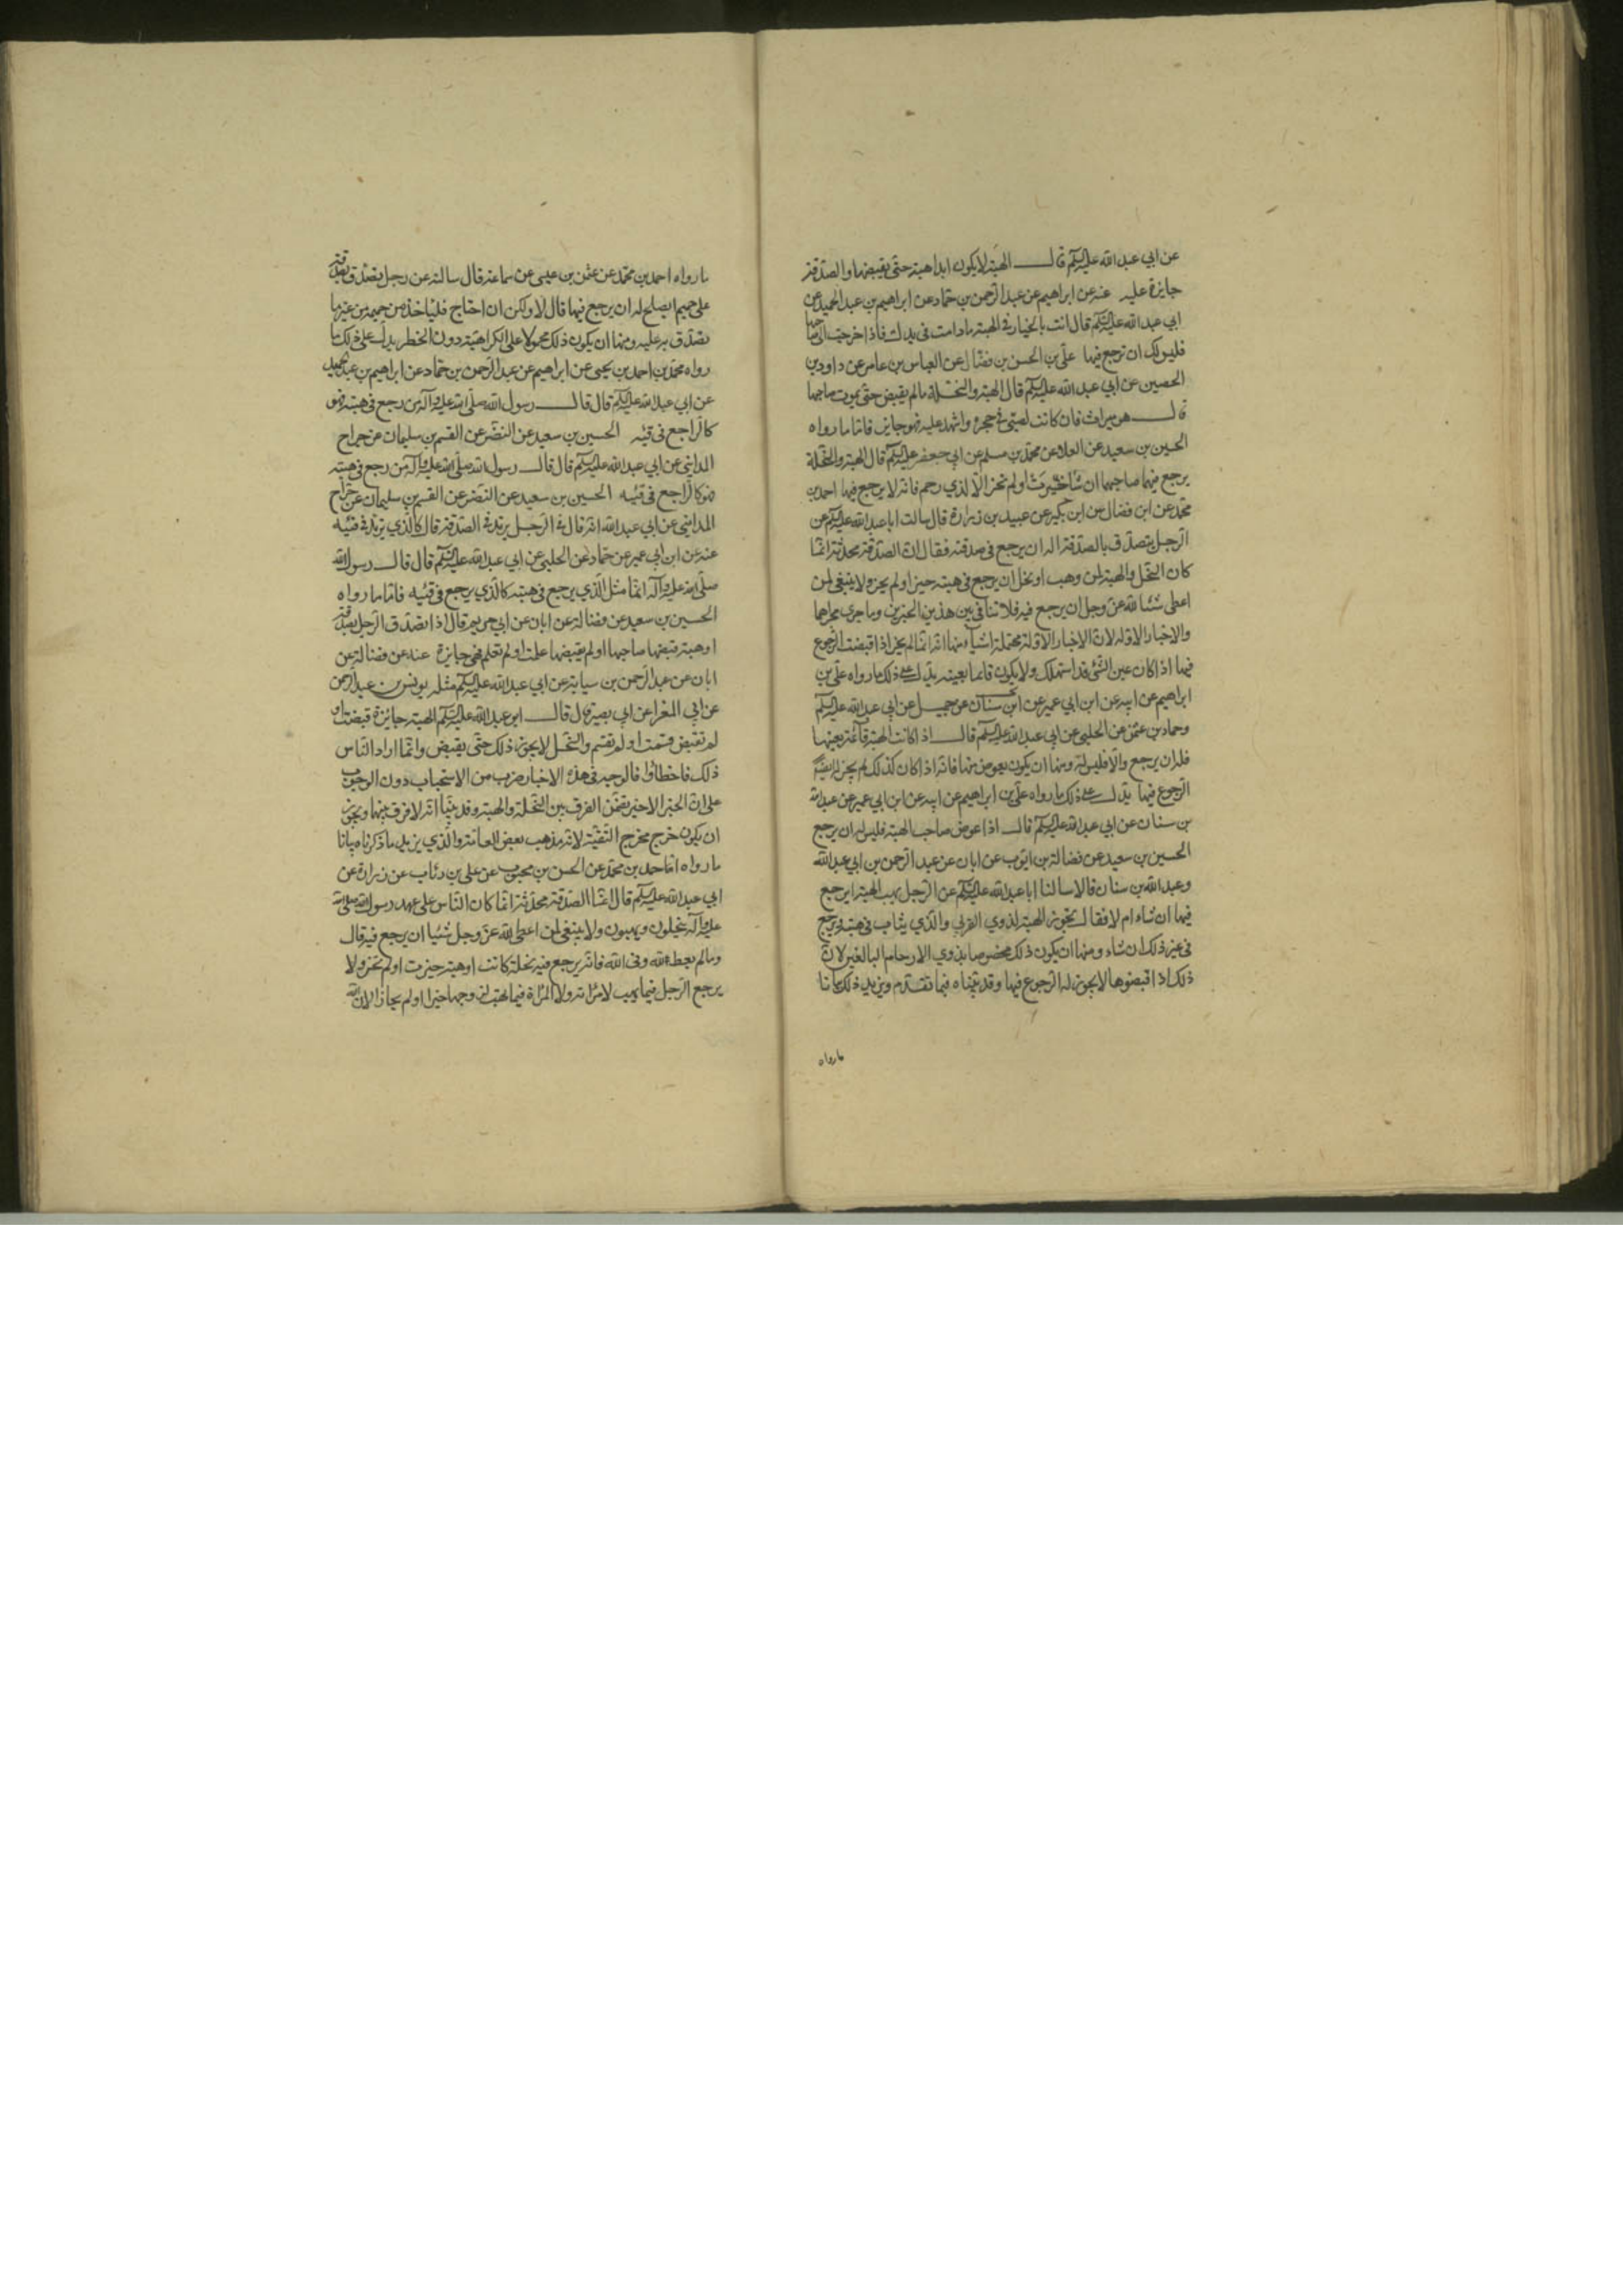 عن ابي عبد الله عليه السلم قال الهبة لا يكون ابدا هبة حتى يقبضها والصدقة
جايزة عليه عنه عن ابراهيم عن عبد الرحمن بن حماد عن ابراهيم بن عبد الحميد عن
ابي عبد الله عليه السلم قال انت بالخيار في الهبة ما دامت في يدك فاذا خرجت الى صاحبها
فليس لك ان ترجع فيها علي بن الحسن بن فضال عن العباس بن عامر عن داود بن
الحصين عن ابي عبد الله عليه السلم قال الهبة والنحلة ما لم يقبض حتى يموت صاحبها
قال هو ميراث فان كانت لصبي في حجره واشهد عليه فهو جايز فاما ما رواه
الحسين بن سعيد عن العلا عن محمد بن مسلم عن ابي جعفر عليه السلم قال الهبة والنحلة
يرجع فيهما صاحبهما ان شاء حيزت او لم تحز الا لذي رحم فانه لا يرجع فيها احمد بن
محمد عن ابن فضال عن ابن بكير عن عبيد بن زرارة قال سالت ابا عبد الله عليه السلم عن
الرجل يتصدق بالصدقة اله ان يرجع في صدقته فقال ان الصدقة محدثة انما
كان النحل والهبة لمن وهب او نحل ان يرجع في هبته حيز او لم يحز ولا ينبغي لمن
اعطى شئا لله عز وجل ان يرجع فيه فلا تنافي بين هذين الخبرين وما جرى مجراهما
والاخبار الاوله لان الاخبار الاوله محتملة اشياء منها انه انما لم يجز اذا قبضت الرجوع
فيها اذا كان عين الشئ قد استهلك ولا يكون قائما بعينه يدل على ذلك ما رواه علي بن
ابراهيم عن ابيه عن ابن ابي عمير عن ابن سنان عن جميل عن ابي عبد الله عليه السلم
وحماد بن عثمن عن الحلبي عن ابي عبد الله عليه السلم قال اذا كانت الهبة قائمة بعينها
فله ان يرجع والا فليس له ومنها ان يكون يعوض منها فانه اذا كان كذلك لم يجز له ايضا
الرجوع فيها يدل على ذلك ما رواه علي بن ابراهيم عن ابيه عن ابن ابي عمير عن عبد الله
بن سنان عن ابي عبد الله عليه السلم قال اذا عوض صاحب الهبة فليس له ان يرجع
الحسين بن سعيد عن فضالة بن ايوب عن ابان عن عبد الرحمن بن ابي عبد الله
وعبد الله بن سنان قالا سالنا ابا عبد الله عليه السلم عن الرجل يهب الهبة ايرجع
فيها ان شاء ام لا فقال يجوز الهبة لذوي القربى والذي يثاب في هبته ويرجع
في غير ذلك ان شاء ومنها ان يكون ذلك مخصوصا بذوي الارحام البالغين لان
ذلك اذا قبضوها لا يجوز له الرجوع فيها وقد بيناه فيما تقدم ويزيد ذلك بيانا
ما رواه
ما رواه احمد بن محمد عن عثمن بن عيسى عن سماعة قال سالته عن رجل يصدق بصدقة
على حميم ايصلح له ان يرجع فيها قال لا ولكن ان احتاج فلياخذ من حميمه من غير ما
تصدق به عليه ومنها ان يكون ذلك محمولا على الكراهية دون الحظر يدل على ذلك ما
رواه محمد بن احمد بن يحيى عن ابراهيم عن عبد الرحمن بن حماد عن ابراهيم بن عبد الحميد
عن ابي عبد الله عليه السلم قال قال رسول الله صلى الله عليه وآله من رجع في هبته فهو
كالراجع في قيئه الحسين بن سعيد عن النضر عن القسم بن سليمان عن جراح
المدايني عن ابي عبد الله عليه السلم قال قال رسول الله صلى الله عليه وآله من رجع في هبته
فهو كالراجع في قيئه الحسين بن سعيد عن النضر عن القسم بن سليمان عن جراح
المدايني عن ابي عبد الله انه قال في الرجل يرتد في الصدقة قال كالذي يرتد في قيئه
عنه عن ابن ابي عمير عن حماد عن الحلبي عن ابي عبد الله عليه السلم قال قال رسول الله
صلى الله عليه وآله انما مثل الذي يرجع في هبته كالذي يرجع في قيئه فاما ما رواه
الحسين بن سعيد عن فضالة عن ابان عن ابي مريم قال اذا تصدق الرجل بصدقة
او هبة قبضها صاحبها او لم يقبضها علمت او لم تعلم فهي جايزة عنه عن فضالة عن
ابان عن عبد الرحمن بن سيابة عن ابي عبد الله عليه السلم مثله يونس بن عبد الرحمن
عن ابي المغرا عن ابي بصير قال قال ابو عبد الله عليه السلم الهبة جايزة قبضت او
لم تقبض قسمت او لم تقسم والنحل لا يجوز ذلك حتى يقبض وانما اراد الناس
ذلك فاخطاؤا فالوجه في هذه الاخبار ضرب من الاستحباب دون الوجوب
على ان الخبر الاخير تضمن الفرق بين النحلة والهبة وقد بينا انه لا فرق بينهما ويجوز
ان يكون خرج مخرج التقية لانه مذهب بعض العامة والذي يزيد ما ذكرناه بيانا
ما رواه احمد بن محمد عن الحسن بن محبوب عن علي بن رئاب عن زرارة عن
ابي عبد الله عليه السلم قال انما الصدقة محدثة انما كان الناس على عهد رسول الله صلى الله
عليه وآله ينحلون ويهبون ولا ينبغي لمن اعطى لله عز وجل شئيا ان يرجع فيه قال
وما لم يعط لله وفي الله فانه يرجع فيه نحلة كانت او هبة حيزت او لم تحز ولا
يرجع الرجل فيما يهب لامراته ولا المراة فيما تهب لزوجها حيز او لم يحاز لان الله